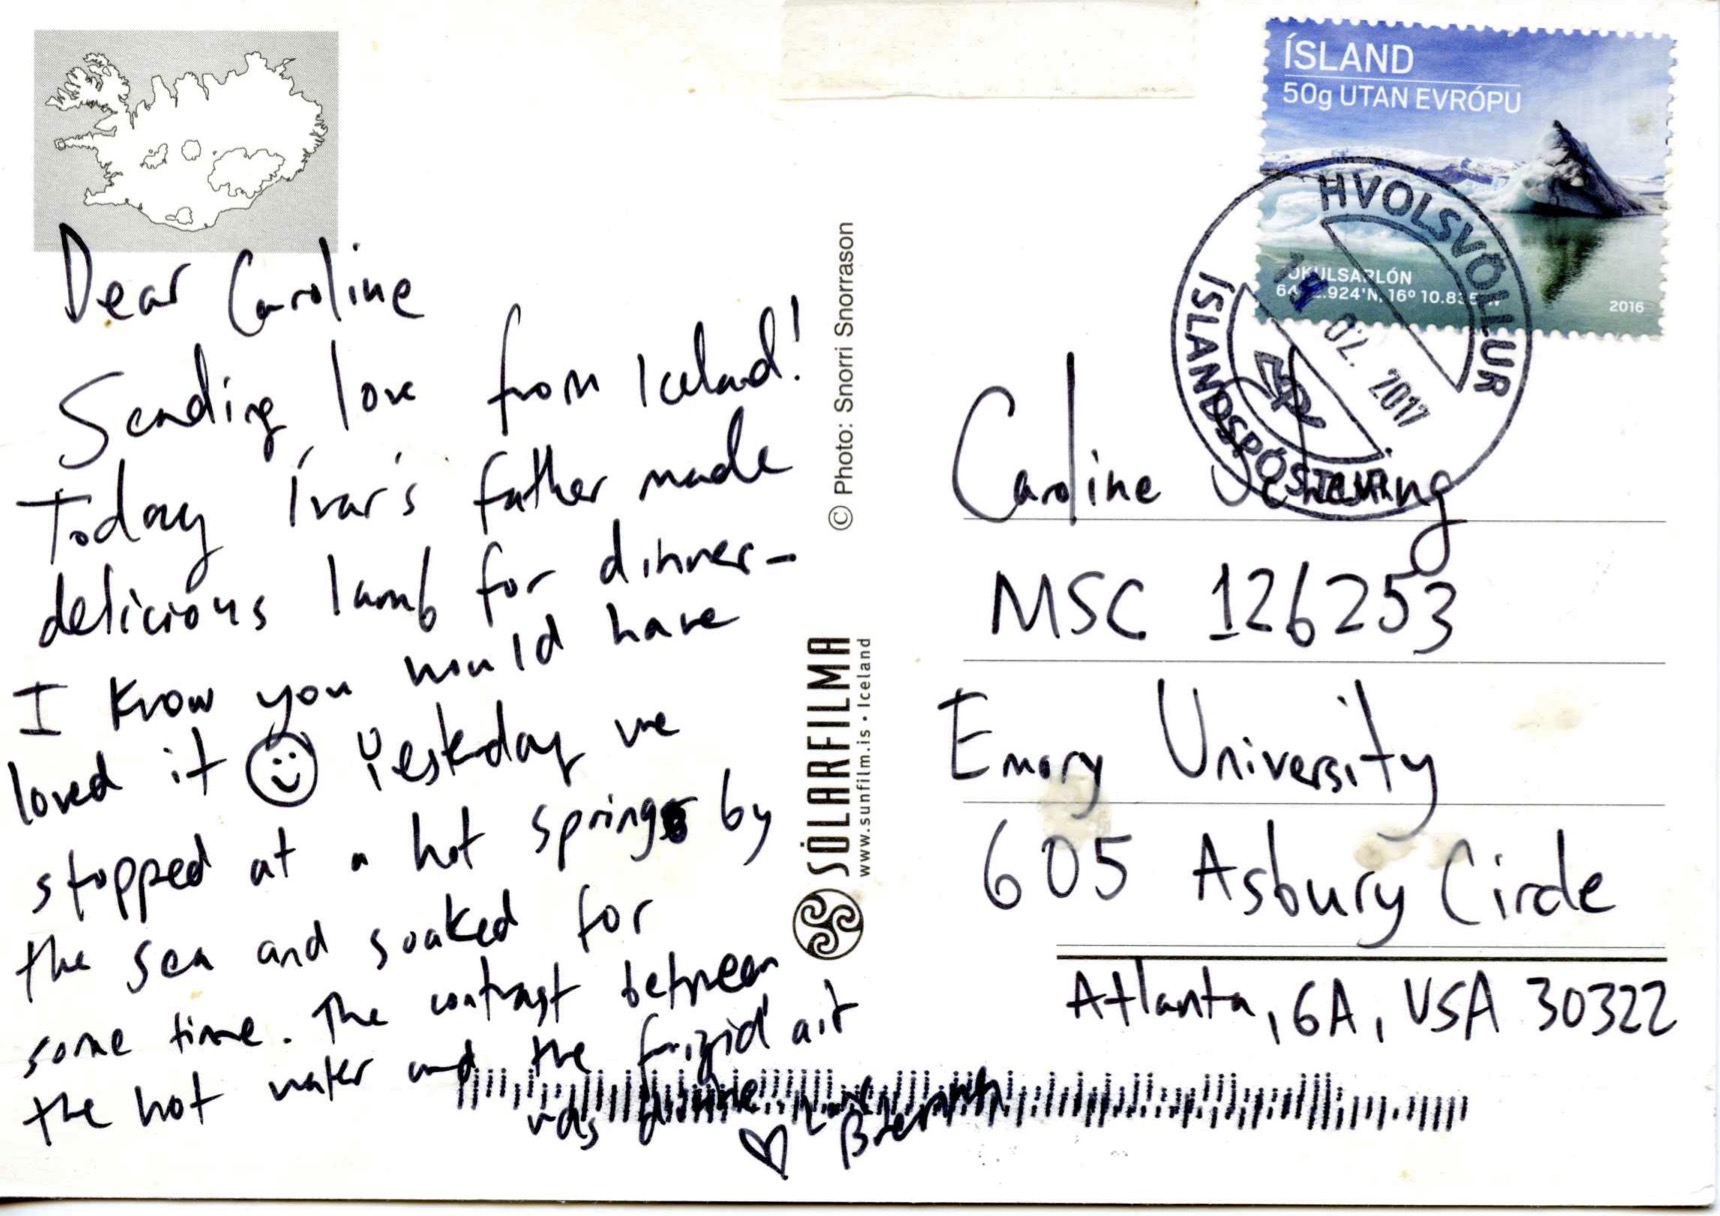 Dear Caroline
Sending love from Iceland!
Today Ívar's father made
delicious lamb for dinner-
I know you would have
loved it Yesterday we
stopped at a hot springs by
the sea and soaked for
some time. The contrast between
the hot water and the frigid air
was divine
© Photo: Snorri Snorrason
SÓLARFILMA
www.sunfilm.is • Iceland
ÍSLAND
50g UTAN EVRÓPU
JÖKULSÁRLÓN
2016
HVOLSVÖLLUR
02. 2017
ÍSLANDSPÓSTUR
Caroline Schening
MSC 126253
Emory University
605 Asbury Circle
Atlanta, GA, USA 30322